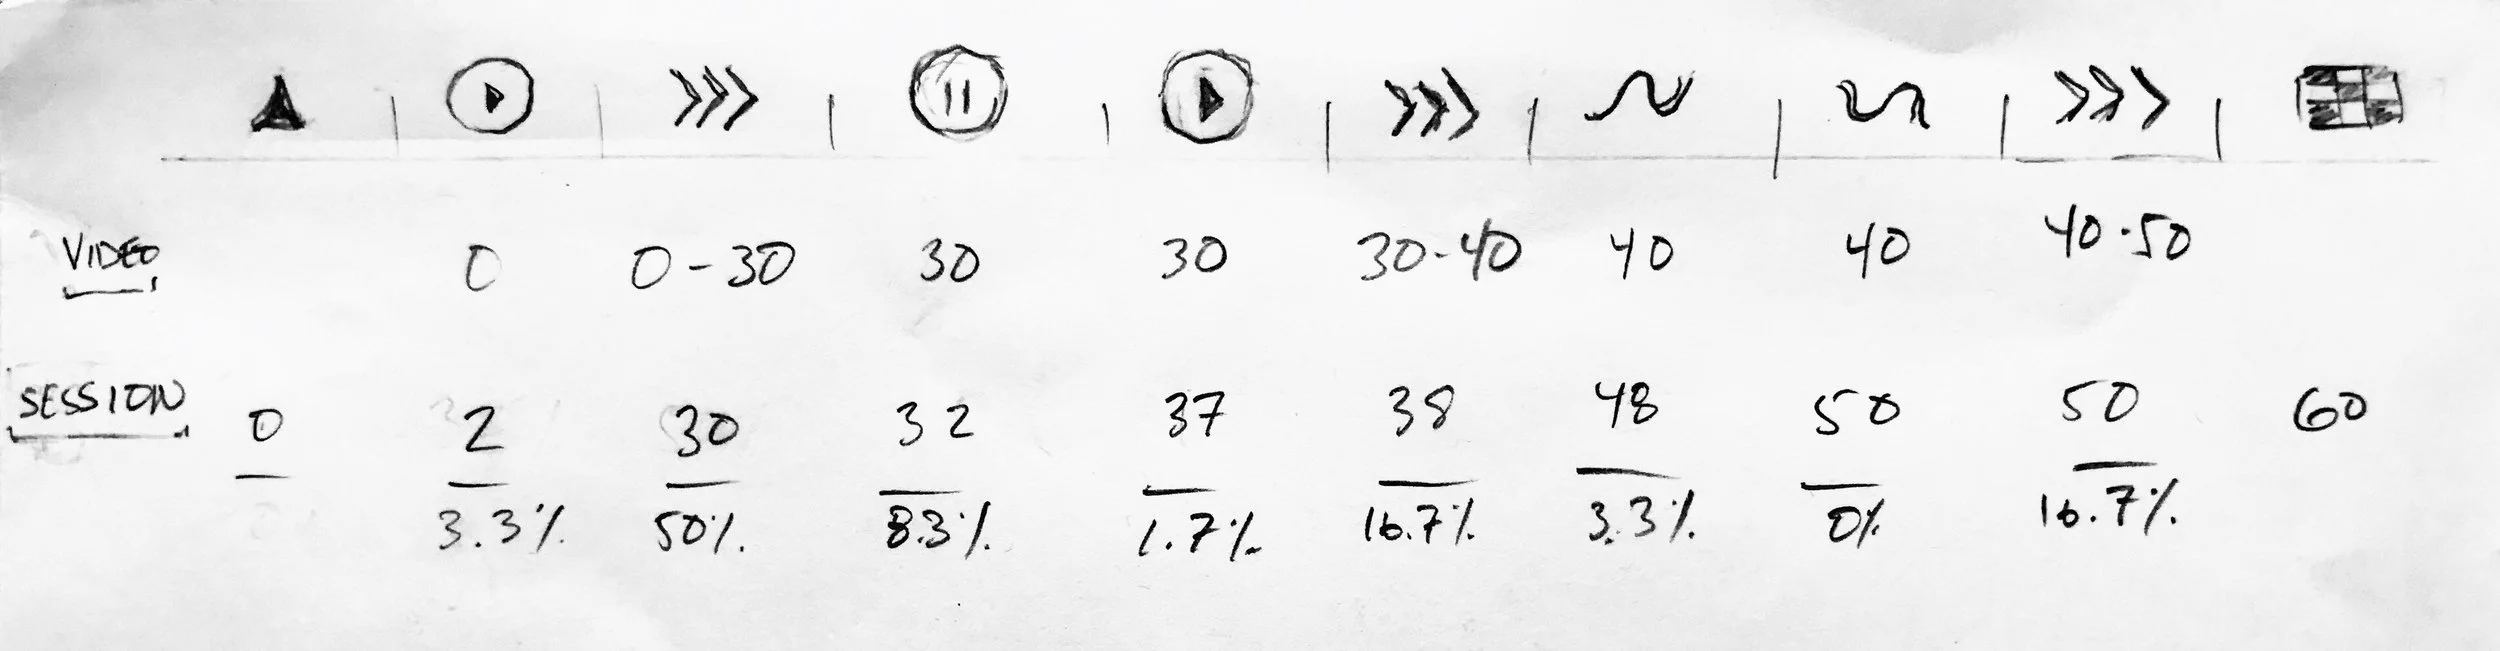 VIDEO 0 0-30 30 30 30-40 40 40 40-50
SESSION 0 2 30 32 37 38 48 50 50 60
3.3% 50% 8.3% 1.7% 16.7% 3.3% 0% 16.7%